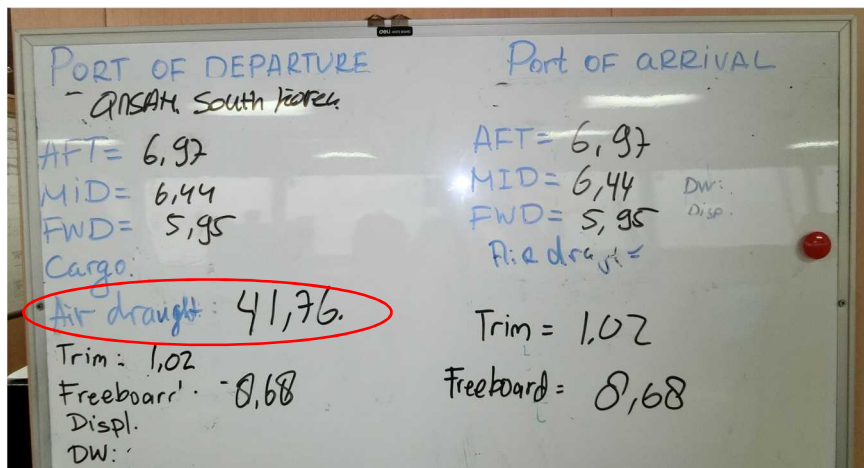 PORT OF DEPARTURE
QNSAH. South Korea
AFT= 6,97
MiD= 6,44
FWD= 5,95
Cargo:
Air draught: 41,76.
Trim: 1,02
Freeboard: 8,68
Displ.
DW:
Port OF ARRiVAL
AFT= 6,97
MID= 6,44 DW:
FWD= 5,95 Disp.
Air draught =
Trim = 1,02
Freeboard = 8,68